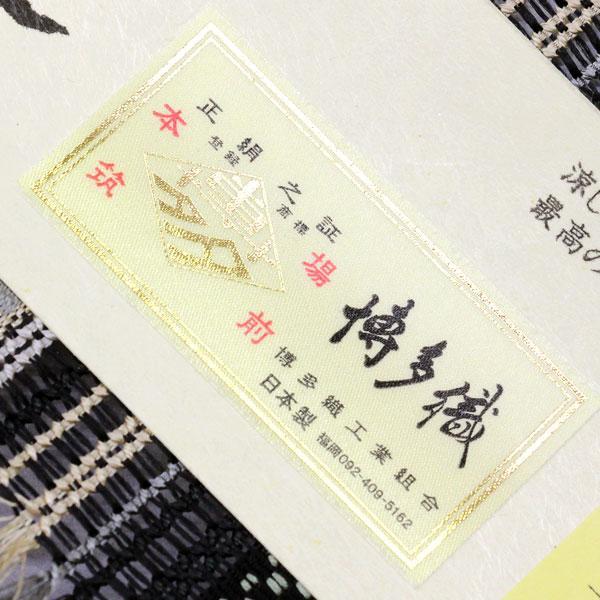 正絹之証
登録商標
本場
筑前
博多織
博多織工業組合
日本製 福岡092-409-5162
涼し
最高の